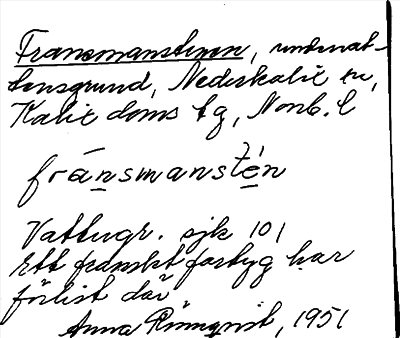 Fransmanstenen, undervat-
tensgrund, Nederkalix sn,
Kalix doms tg, Norrb. l
fránsmanstén
Vattugr. sjk 101
Ett franskt fartyg har
förlist där
Anna Rönnqvist, 1951